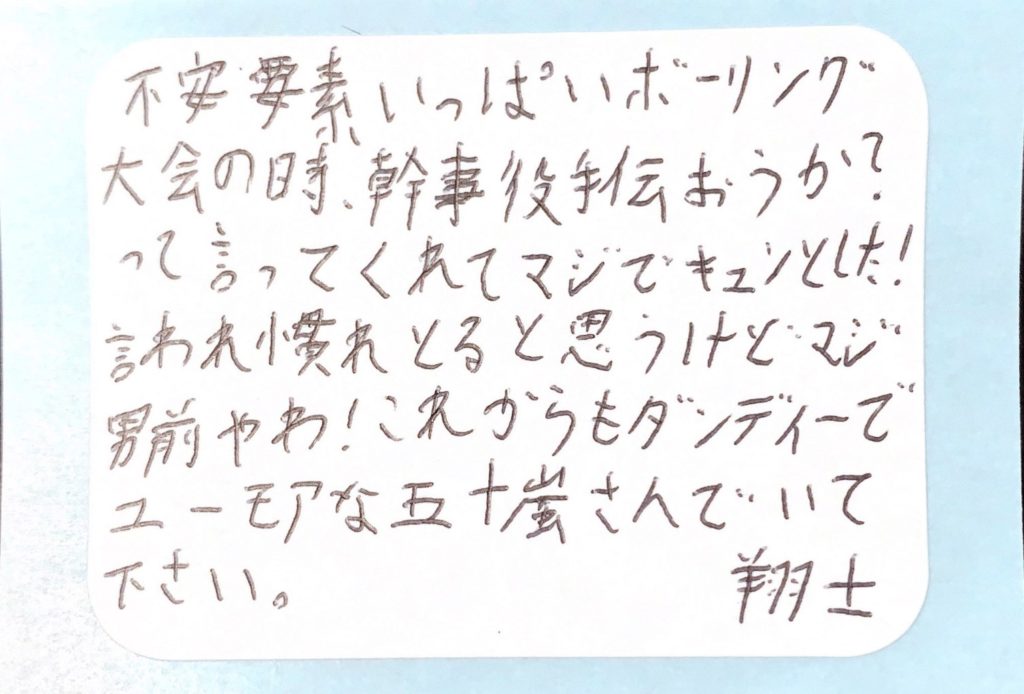 不安要素いっぱいボーリング
大会の時、幹事役手伝おうか?
って言ってくれてマジでキュンとした!
言われ慣れとると思うけどマジ
男前やわ!これからもダンディーで
ユーモアな五十嵐さんでいて
下さい。 翔士